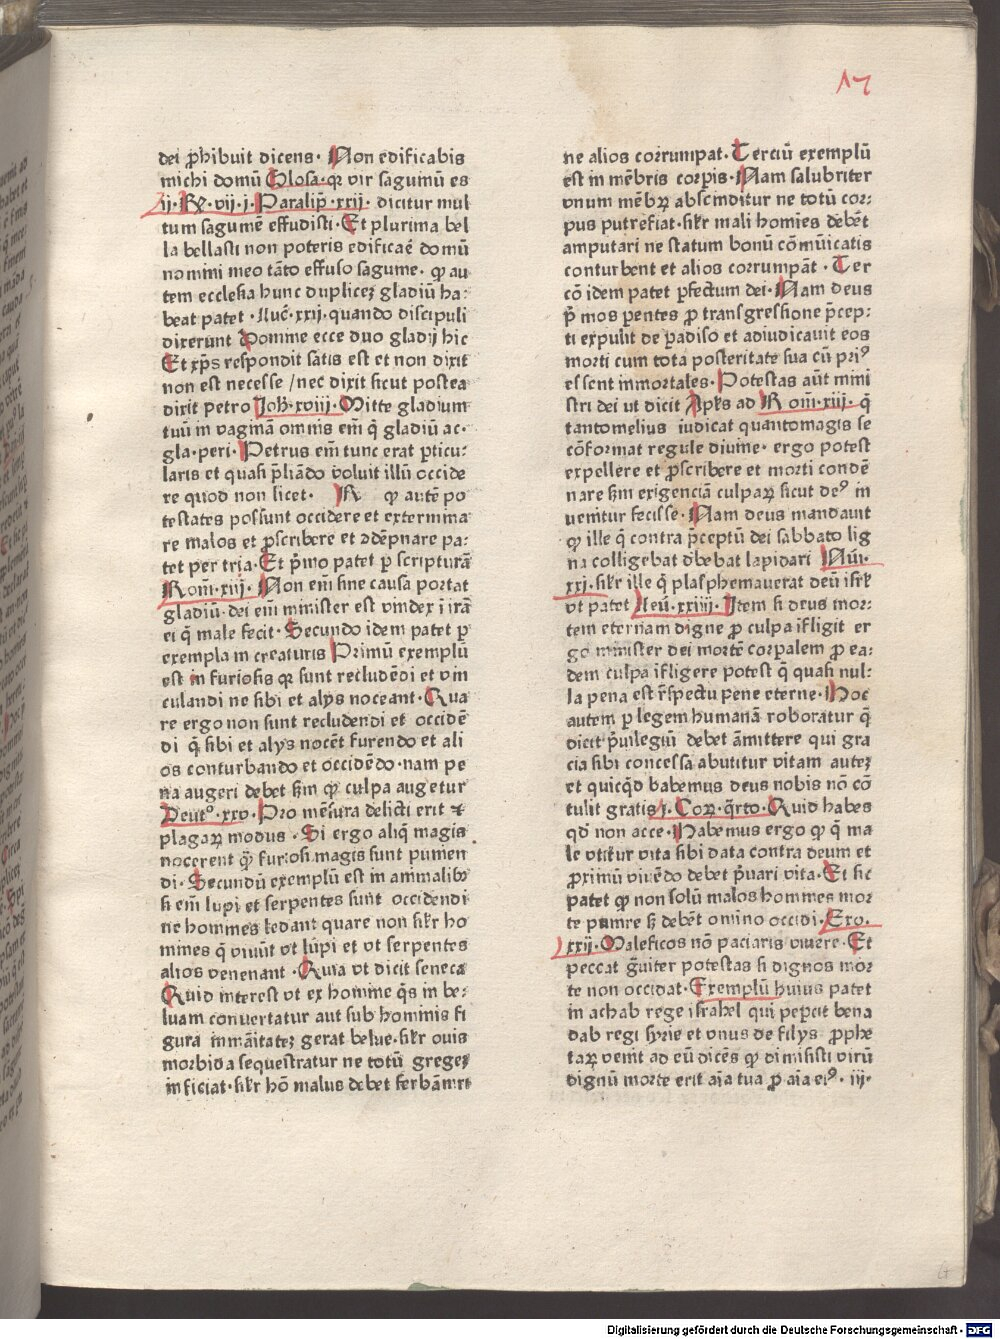 17
dei ꝓhibuit dicens· Non edificabis
michi domū Glosa· qꝛ vir sagumū es
ij· Rꝫ· vij· j· Paralip̄· xxij· dicitur mul
tum sagumē effudisti· Et plurima bel
la bellasti non poteris edificaē domū
nomini meo tāto effuso sagume· ꝙ au
tem ecclesia hunc duplicez gladiū ha:
beat patet· Luc̄· xxij· quando discipuli
dixerunt Domme ecce duo gladij hic
Et xp̄s respondit satis est et non dixit
non est necesse / nec dixit sicut postea
dixit petro Joh̄· xviij· Mitte gladium
tuū in vagmā ommis em̄ q̄ gladiū ac·
gla· peri· Petrus em̄ tunc erat ꝑticu:
laris et quasi p̄liādo voluit illū occide
re quod non licet· R ꝙ autē po
testates possunt occidere et extermma
re malos et ꝓscribere et ꝯdēpnare pa:
tet per tria· Et p̄mo patet ꝑ scripturā
Rom̄· xiij· Non em̄ sine causa portat
gladiū· dei em̄ minister est vindex ī irā
ei q̄ male fecit· Secundo idem patet ꝑ
exempla in creaturis Primū exemplū
est in furiosis qꝛ sunt recludēdi et vin
culandi ne sibi et alys noceant· Qua
re ergo non sunt recludendi et occidē
di q̄ sibi et alys nocēt furendo et ali
os conturbando et occidēdo· nam pe
na augeri debet ẜm ꝙ culpa augetur
Deut°· xxv· Pro mēsura delicti erit ⁊
plagaꝝ modus· Si ergo aliq̄ magis
nocerent q̄ꝫ furiosi magis sunt punien
di· Secundū exemplū est in animalibꝰ
si em̄ lupi et serpentes sunt occidendi
ne hommes ledant quare non sil̄r ho
mmes q̄ vivūt vt lupi et vt serpentes
alios venenant· Quia vt dicit seneca
Quid interest vt ex homme q̄s in be:
luam convertatur aut sub hominis fi
gura inmāitatez gerat belue· sil̄r ovis
morbida sequestratur ne totū gregez
inficiat· sil̄r hō malus debet ferbāni
ne alios corrumpat· Terciū exemplū
est in mēbris corꝑis· Nam salubriter
vnum mēbꝝ abscinditur ne totū cor:
pus putrefiat· sil̄r mali homīes debēt
amputari ne statum bonū cōmūicatis
conturbent et alios corrumpāt· Ter
cō idem patet ꝑfectum dei· Nam deus
p̄mos ꝑentes ꝓ transgressione p̄cep:
ti expulit de ꝑadiso et adiudicauit eos
morti cum tota posteritate sua cū priꝰ
essent inmortales· Potestas aūt mini
stri dei ut dicit Apl̄s ad Rom̄· xiij· q̄
tantomelius iudicat quantomagis se
cōformat regule diuine· ergo potest
expellere et ꝓscribere et morti condē
nare ẜm exigenciā culpaꝝ sicut deꝰ in
uenitur fecisse· Nam deus mandauit
ꝙ ille q̄ contra p̄ceptū dei sabbato lig
na colligebat d̄bebat lapidari Nūi·
xxj· sil̄r ille q̄ plasphemauerat deū isrl̄
vt patet Leū· xxiiij· Jtem si deus mor:
tem eternam digne ꝓ culpa īfligit er
go minister dei mortē corꝑalem ꝓ ea:
dem culpa īfligere potest q̄ quasi nul:
la pena est r̄spectu pene eterne· Hoc
autem ꝑ legem humanā roboratur q̄
dicit p̄uilegiū debet āmittere qui gra
cia sibi concessa abutitur vitam autez
et quicq̄d babemus deus nobis nō cō
tulit gratis j· Coꝝ· q̄rto· Quid habes
qd̄ non acce· Habemus ergo ꝙ q̄ ma
le vtit̄ur vita sibi data contra deum et
ꝓximū viuēdo debet p̄uari vita· Et sic
patet ꝙ non solū malos hommes mor
te punire sꝫ debēt omīno occidi· Exo·
xxij· Maleficos nō paciaris viuere· Et
peccat gͣuiter potestas si dignos mor
te non occidat· Exemplū huius patet
in achab rege israhel qui peꝑcit bena
dab regi syrie et vnus de filys ꝓphe
taꝝ venit ad eū dicēs ꝙ dimisisti virū
dignū morte erit aīa tua ꝓ aīa eiꝰ· iij·
Digitalisierung gefördert durch die Deutsche Forschungsgemeinschaft · DFG